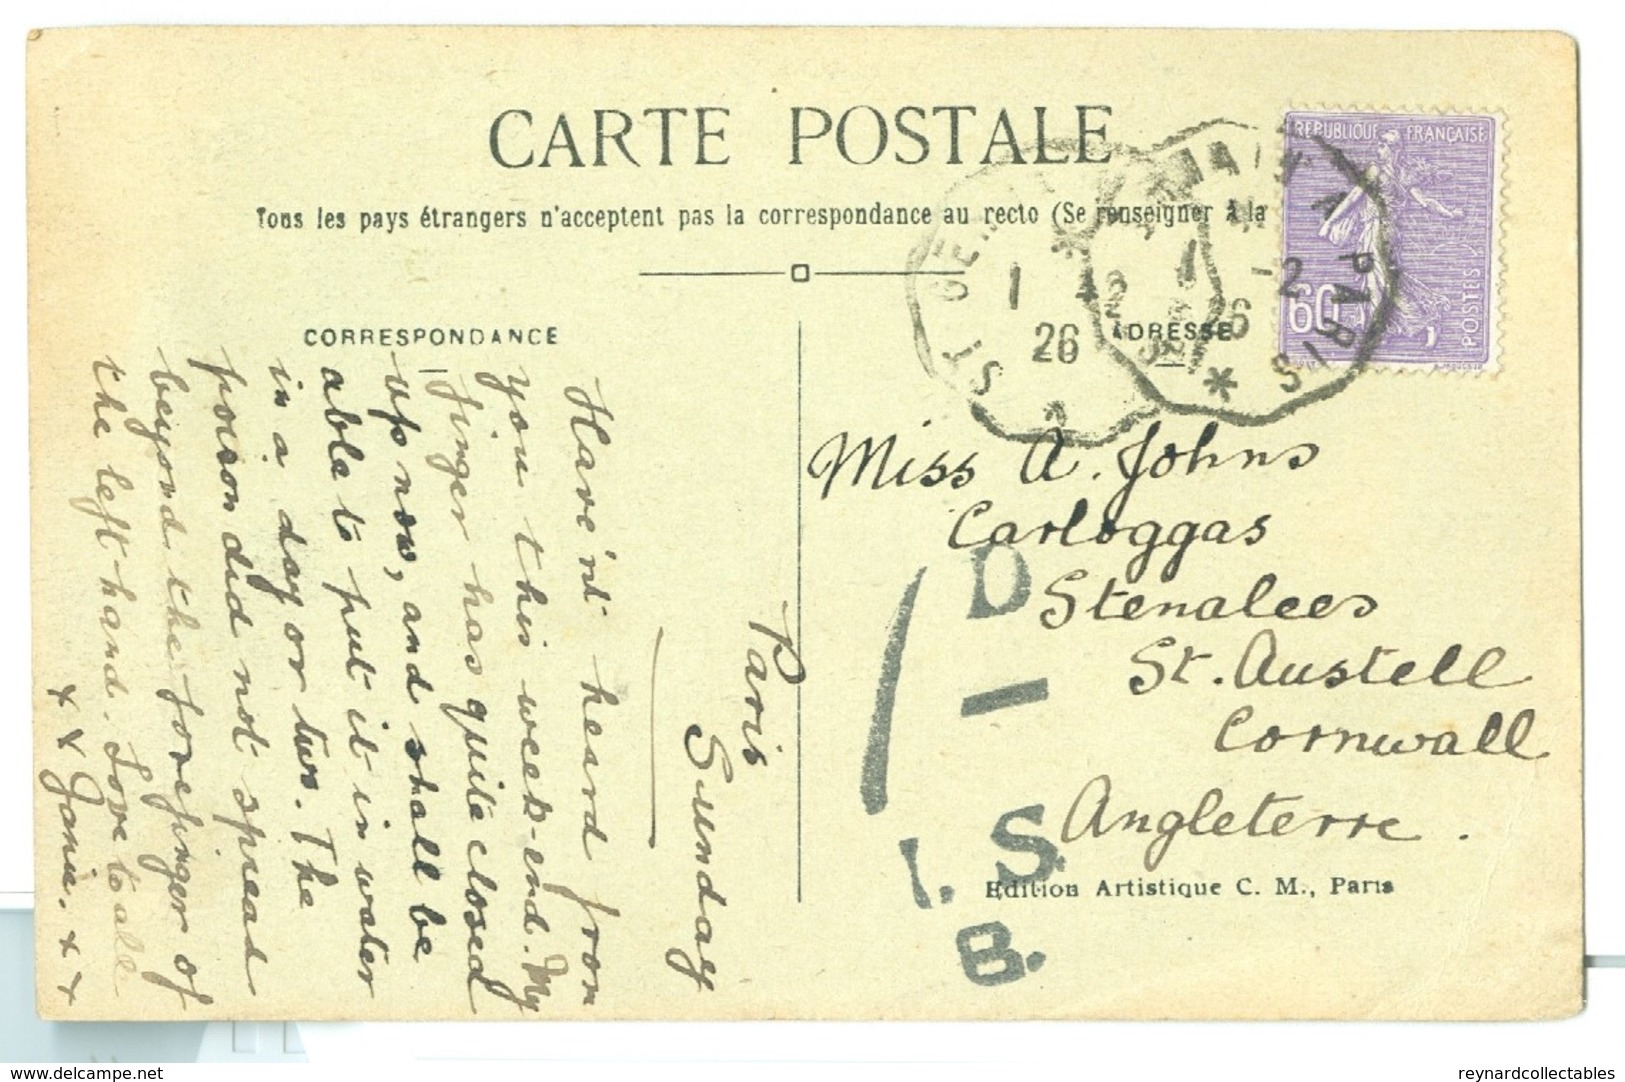 CARTE POSTALE
Tous les pays étrangers n'acceptent pas la correspondance au recto (Se renseigner à la
CORRESPONDANCE
ADRESSE
REPUBLIQUE FRANÇAISE
POSTES
60
ST GERMAIN A PARIS
1 -2
26
Paris
Sunday
Have'nt heard from
you this week-end. My
finger has quite closed
up now, and shall be
able to put it in water
in a day or two. The
poison did not spread
beyond the forefinger of
the left hand. Love to all
x x Janie. x x
Miss A. Johns
Carloggas
Stenalees
St. Austell
Cornwall
Angleterre.
D
I. S.
B.
Edition Artistique C. M., Paris
delcampe.net
reynardcollectables